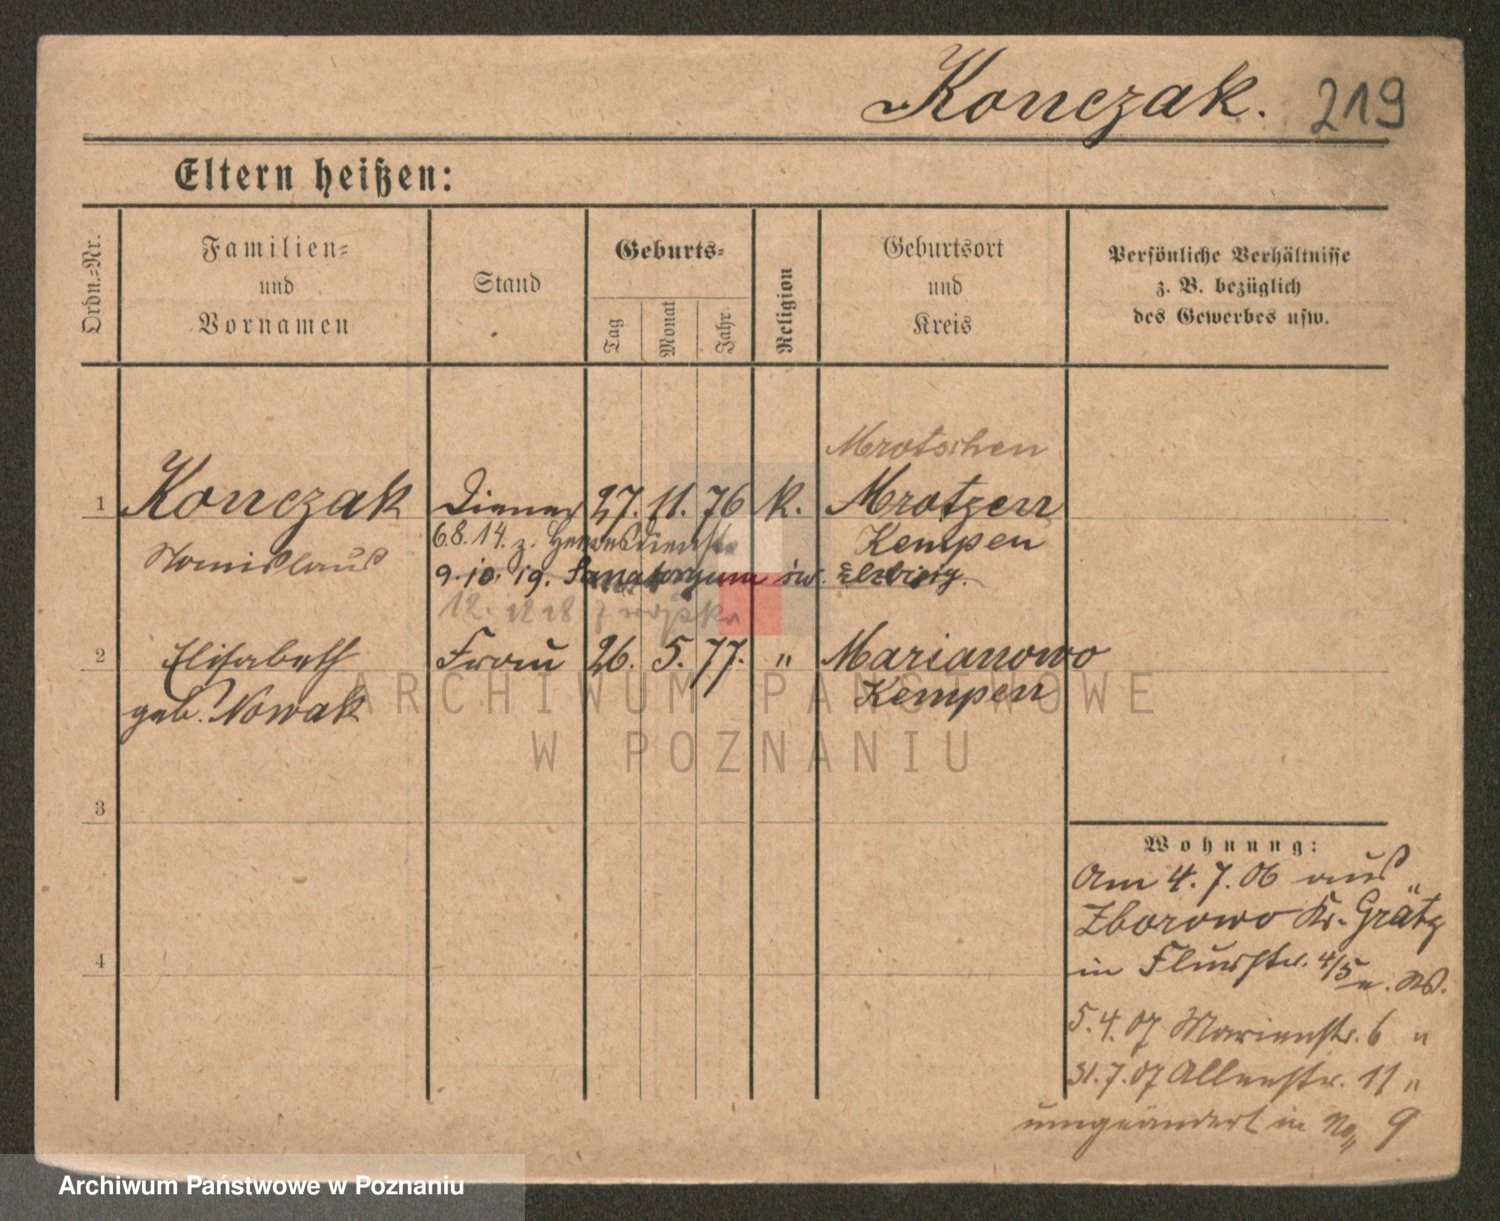 Konczak. 219
Eltern heißen:
Ordn.-Nr.
Familien-
und
Vornamen
Stand
Geburts-
Tag
Monat
Jahr
Religion
Geburtsort
und
Kreis
Persönliche Verhältnisse
z. B. bezüglich
des Gewerbes usw.
Mrotschen
1 Konczak Diener 27. 11. 76 k. Mrotzen
6.8.14. z. Heeresdienste Kempen
Stanislaus
9.10.19. Sanatoryum św. Elżbiety.
12. 12 18 z wojska
2 Elisabeth Frau 26. 5. 77. " Marianowo
geb. Nowak Kempen
ARCHIWUM PAŃSTWOWE
W POZNANIU
3
4
Wohnung:
Am 4. 7. 06 aus
Zborowo Kr. Grätz
in Flurstr. 4/5
5.4.07 Marienstr. 6 "
31.7.07 Allenstr. 11 "
umgeändert in No 9
Archiwum Państwowe w Poznaniu